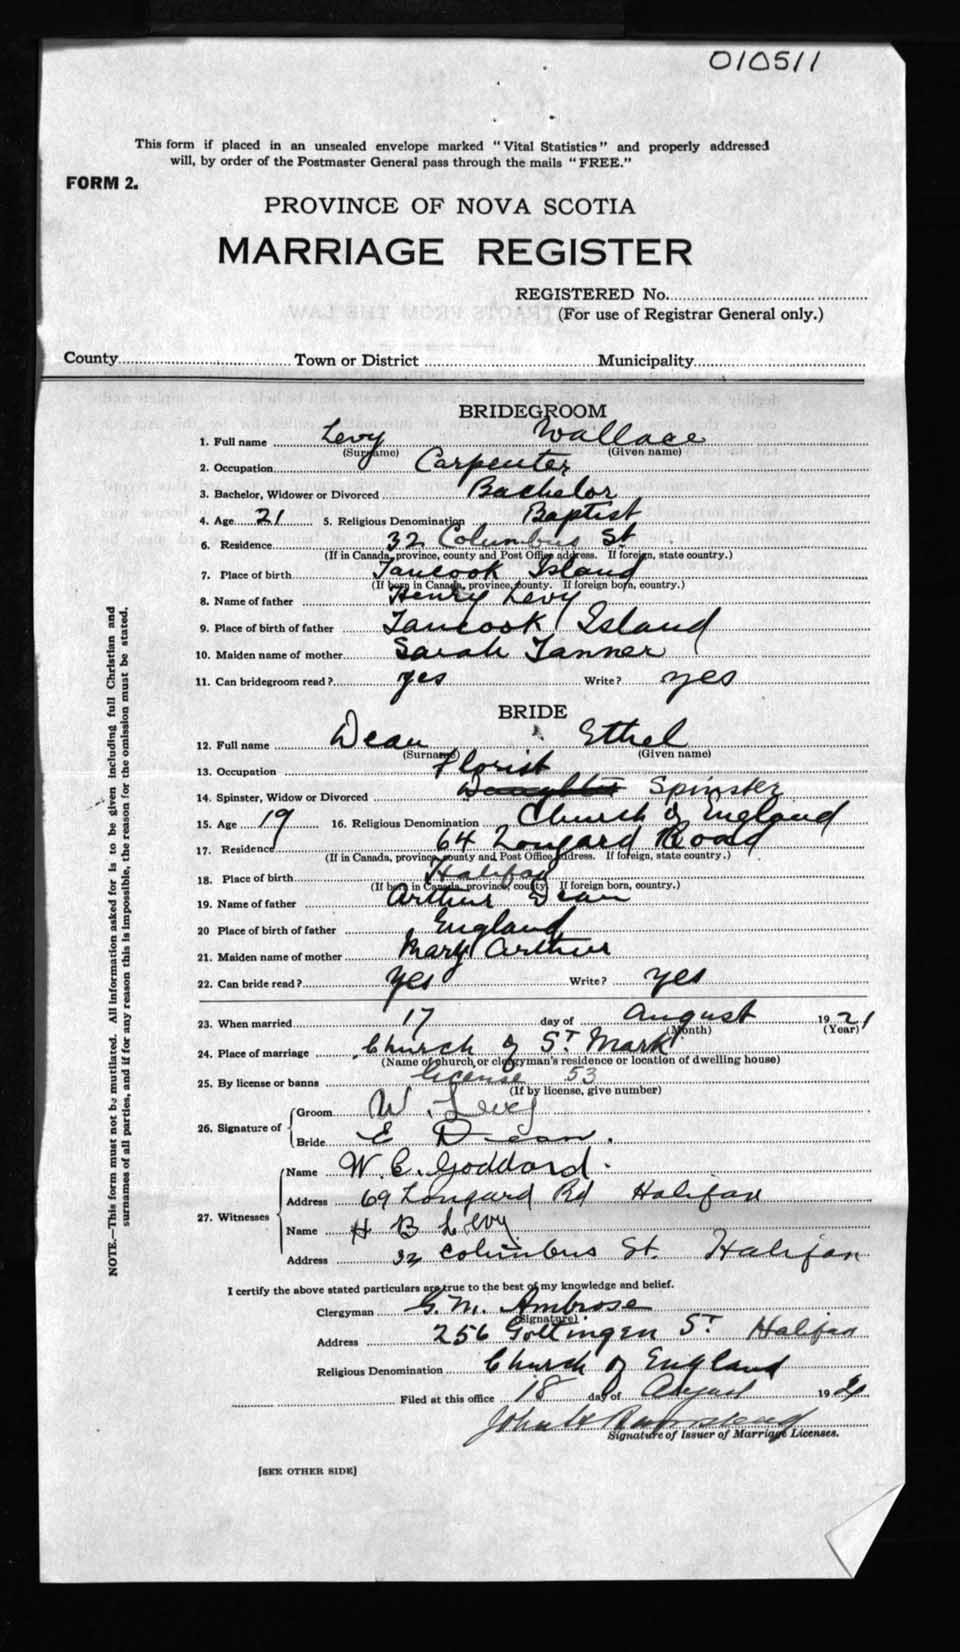 010511
This form if placed in an unsealed envelope marked "Vital Statistics" and properly addressed
will, by order of the Postmaster General pass through the mails "FREE."
FORM 2.
PROVINCE OF NOVA SCOTIA
MARRIAGE REGISTER
REGISTERED No.
(For use of Registrar General only.)
County Town or District Municipality
BRIDEGROOM
1. Full name Levy Wallace
(Surname) (Given name)
2. Occupation Carpenter
3. Bachelor, Widower or Divorced Bachelor
4. Age 21 5. Religious Denomination Baptist
6. Residence 32 Columbus St
(If in Canada, province, county and Post Office address. If foreign, state country.)
7. Place of birth Tancook Island
(If born in Canada, province, county. If foreign born, country.)
8. Name of father Henry Levy
9. Place of birth of father Tancook Island
10. Maiden name of mother Sarah Tanner
11. Can bridegroom read? yes Write? yes
BRIDE
12. Full name Dean Ethel
(Surname) (Given name)
13. Occupation Florist
14. Spinster, Widow or Divorced Daughter Spinster
15. Age 19 16. Religious Denomination Church of England
17. Residence 64 Longard Road
(If in Canada, province, county and Post Office address. If foreign, state country.)
18. Place of birth Halifax
(If born in Canada, province, county. If foreign born, country.)
19. Name of father Arthur Dean
20 Place of birth of father England
21. Maiden name of mother Mary Arthur
22. Can bride read? Yes Write? yes
23. When married 17 day of August 1921
(Month) (Year)
24. Place of marriage Church of St Mark
(Name of church or clergyman's residence or location of dwelling house)
25. By license or banns license 53
(If by license, give number)
26. Signature of Groom W. Levy
Bride E Dean.
27. Witnesses Name W. C. Goddard.
Address 69 Longard Rd Halifax
Name H B Levy
Address 32 Columbus St. Halifax
I certify the above stated particulars are true to the best of my knowledge and belief.
Clergyman G. M. Ambrose
(Signature)
Address 256 Gottingen St Halifax
Religious Denomination Church of England
Filed at this office 18 day of August 1921
John
Signature of Issuer of Marriage Licenses.
[SEE OTHER SIDE]
NOTE.—This form must not be mutilated. All information asked for is to be given including full Christian and
surnames of all parties, and if for any reason this is impossible, the reason for the omission must be stated.